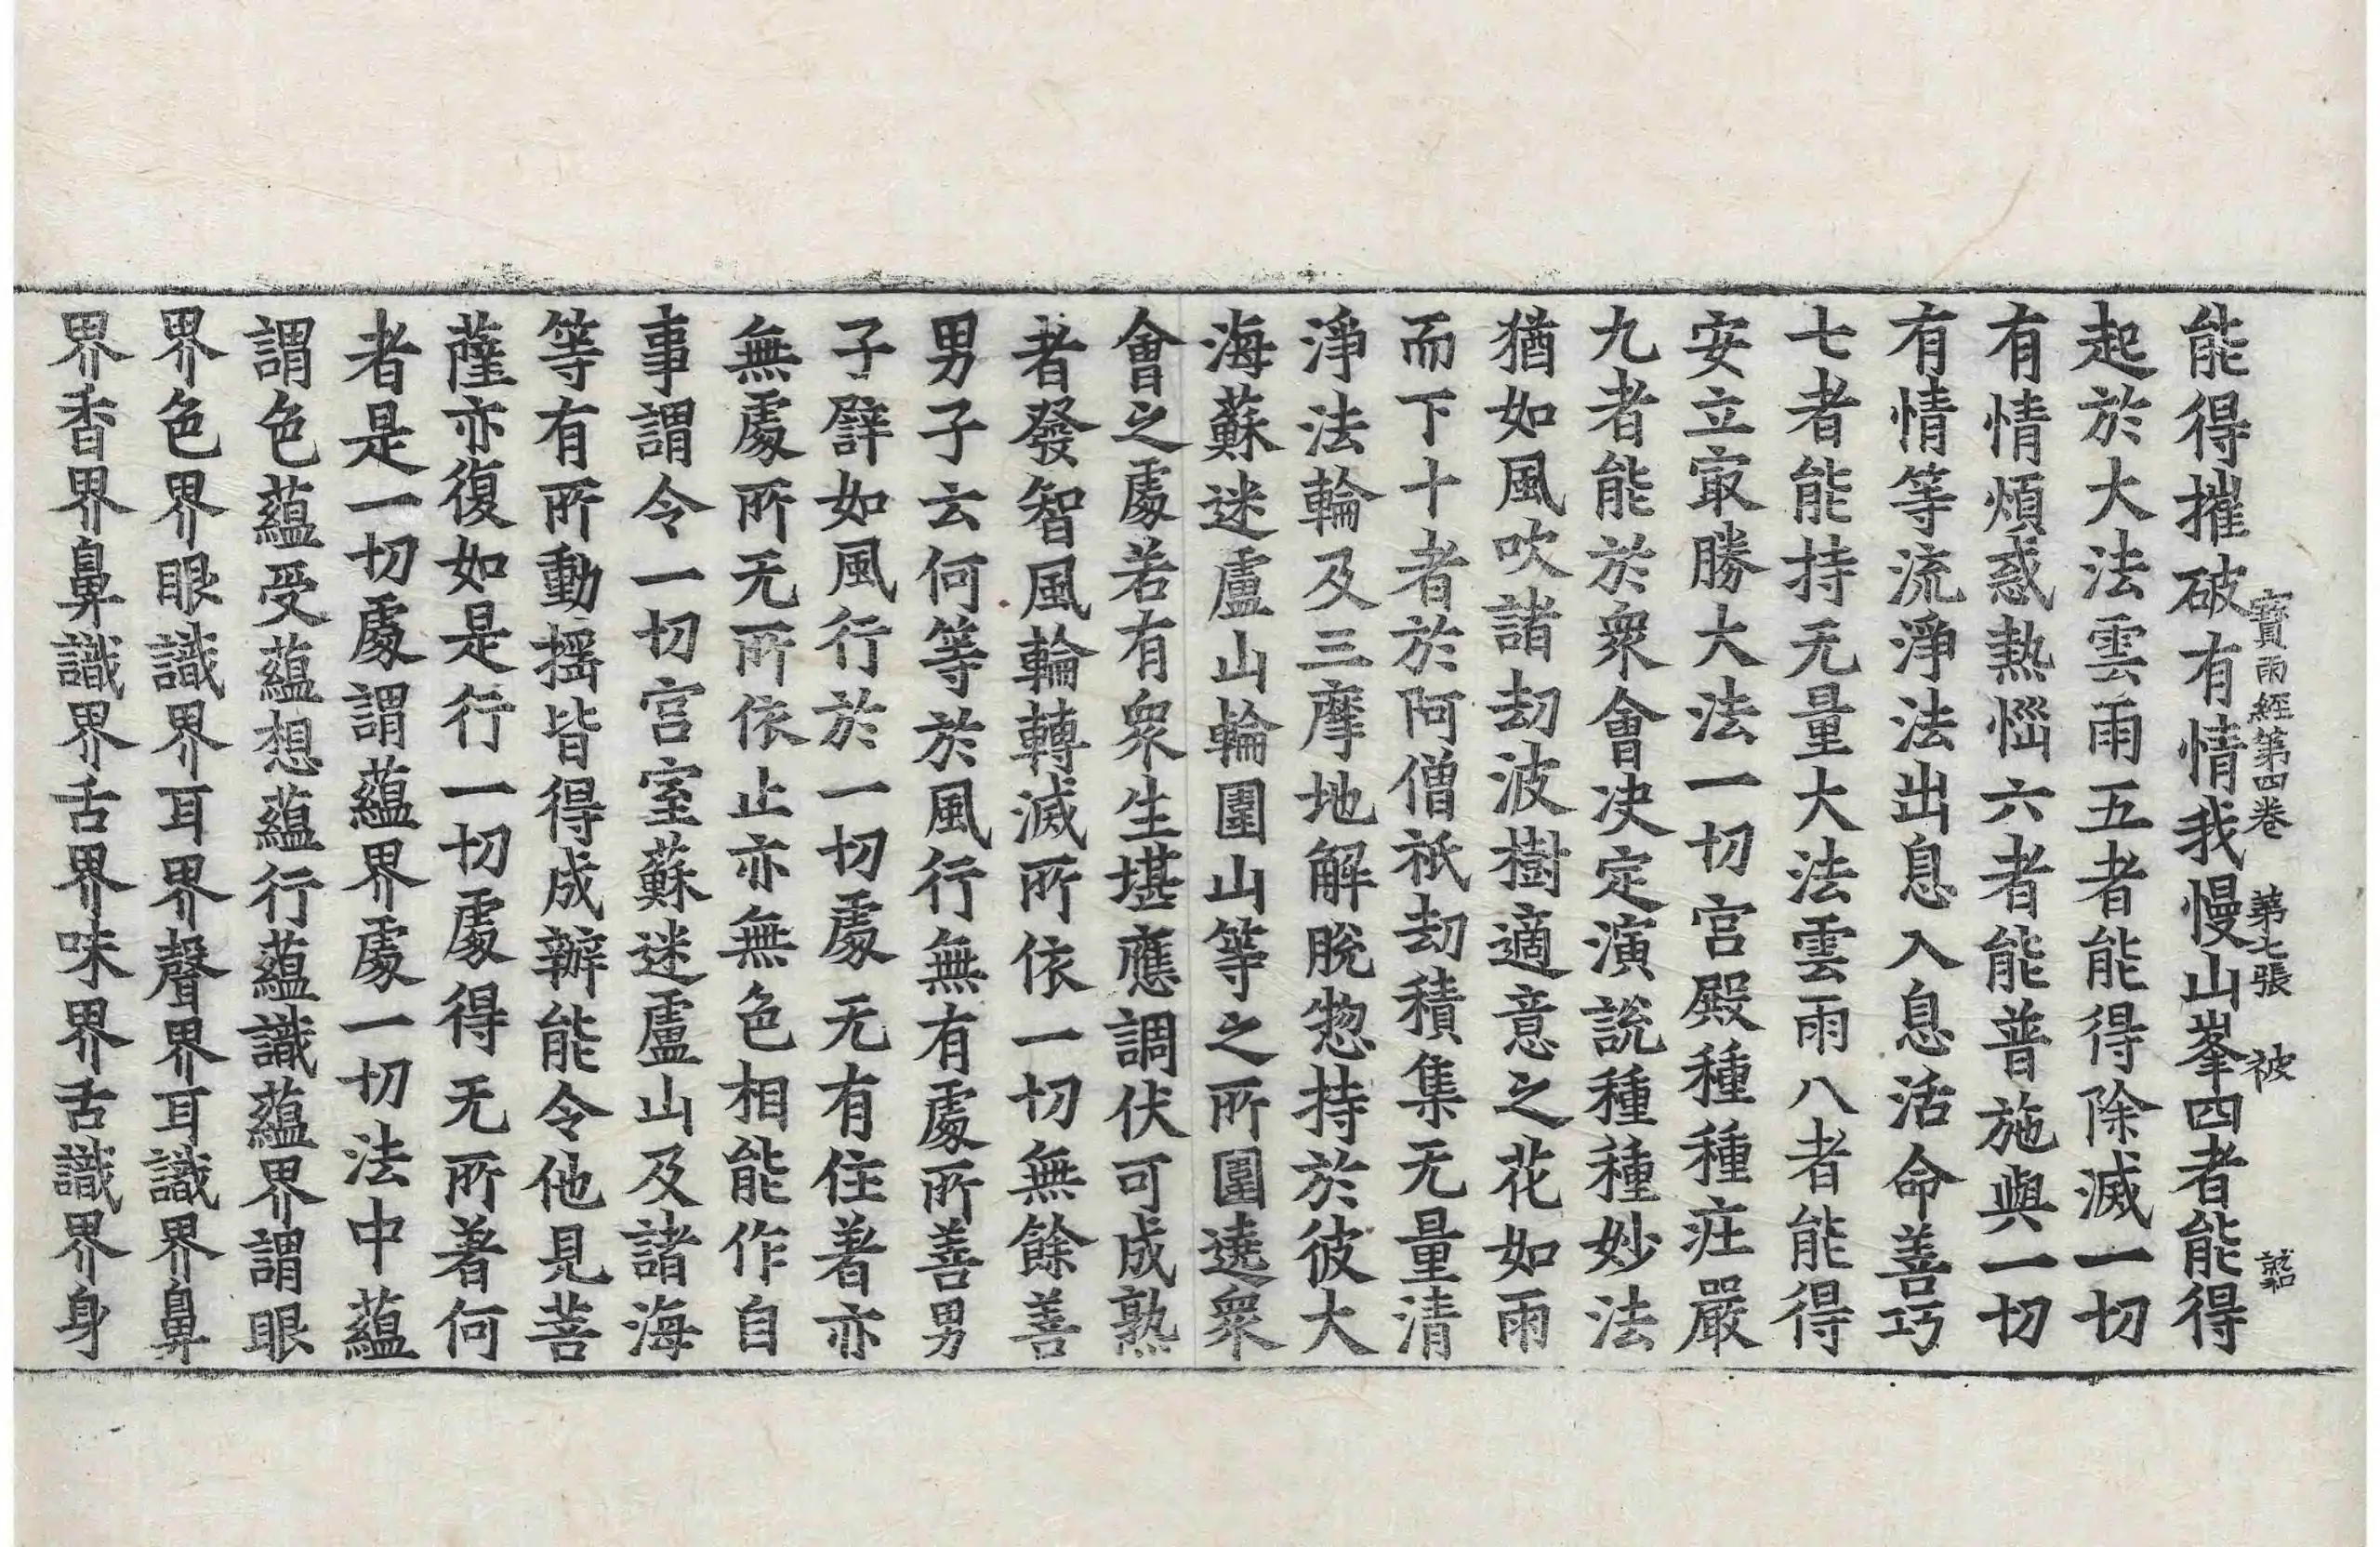 寶雨經第四卷 第七張 被
能得摧破有情我慢山峯四者能得
起於大法雲雨五者能得除滅一切
有情煩惑熱惱六者能普施與一切
有情等流淨法出息入息活命善巧
七者能持无量大法雲雨八者能得
安立㝡勝大法一切宫殿種種庄嚴
九者能於衆會决定演說種種妙法
猶如風吹諸劫波樹適意之花如雨
而下十者於阿僧祇劫積集无量清
淨法輪及三摩地解脫惣持於彼大
海蘇迷盧山輪圍山等之所圍遶衆
會之處若有衆生堪應調伏可成熟
者發智風輪轉滅所依一切無餘善
男子云何等於風行無有處所善男
子譬如風行於一切處无有住著亦
無處所无所依止亦無色相能作自
事謂令一切宫室蘇迷盧山及諸海
等有所動揺皆得成辦能令他見菩
薩亦復如是行一切處得无所著何
者是一切處謂蘊界處一切法中蘊
謂色蘊受蘊想蘊行蘊識蘊界謂眼
界色界眼識界耳界聲界耳識界鼻
界香界鼻識界舌界味界舌識界身